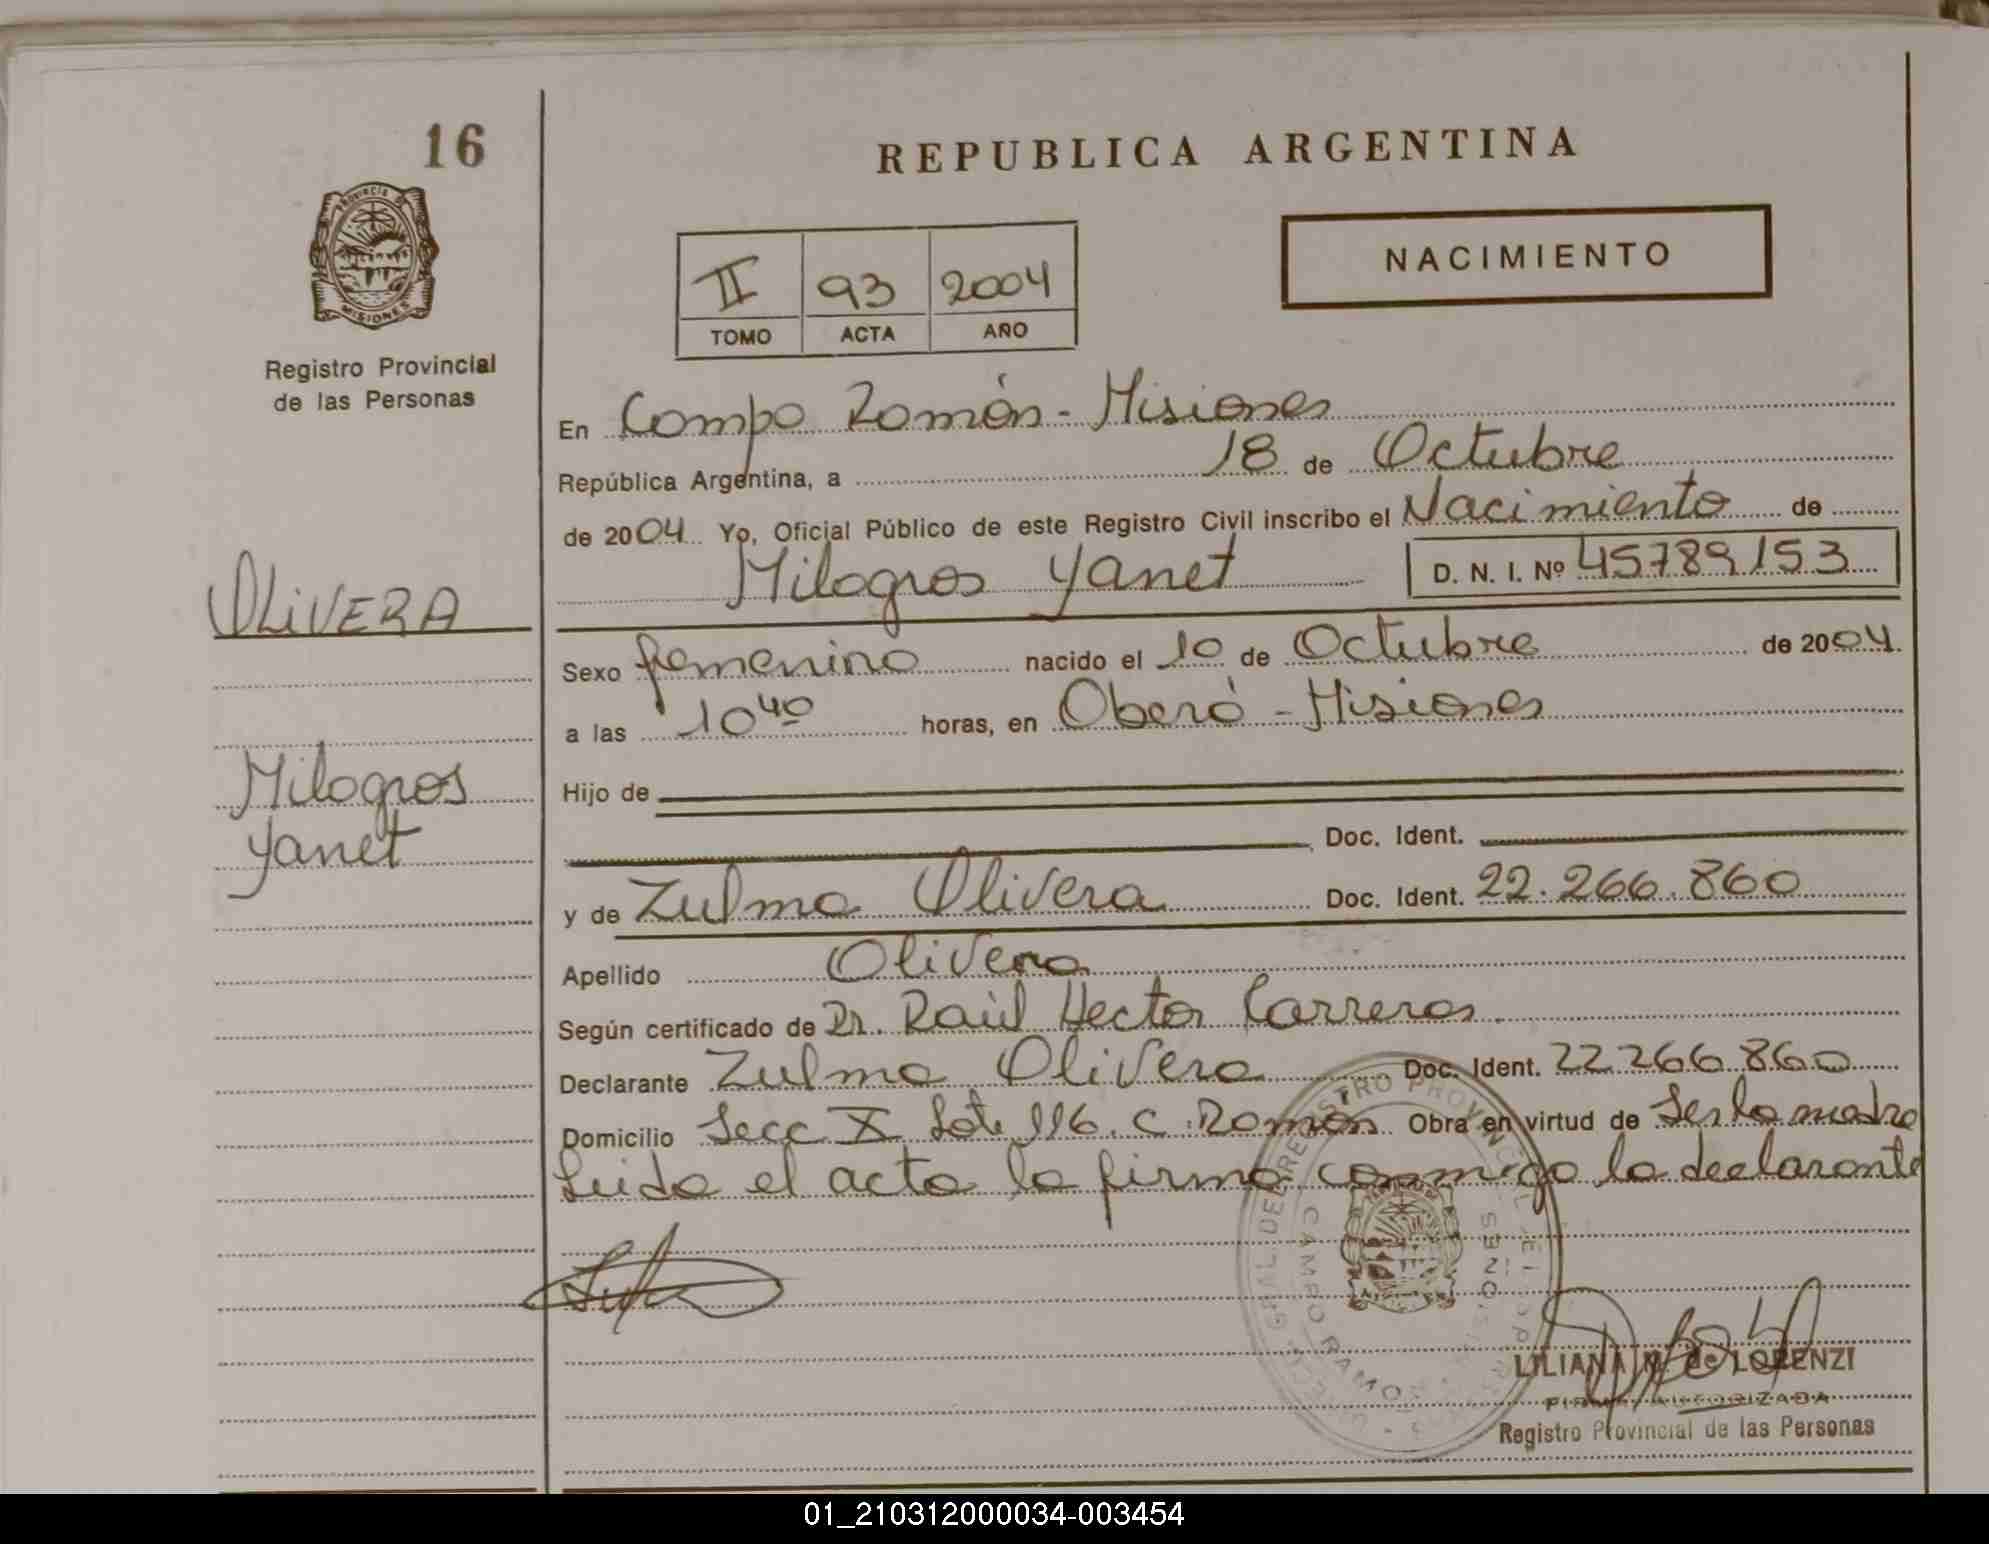 16
PROVINCIA DE
MISIONES
Registro Provincial
de las Personas
OLIVERA
Milagros
Yanet
REPUBLICA ARGENTINA
NACIMIENTO
II 93 2004
TOMO ACTA AÑO
En Campo Ramón - Misiones
República Argentina, a 18 de Octubre
de 2004. Yo, Oficial Público de este Registro Civil inscribo el Nacimiento de
Milagros Yanet D. N. I. Nº 45789153
Sexo femenino nacido el 10 de Octubre de 2004.
a las 10 40 horas, en Oberá - Misiones
Hijo de
Doc. Ident.
y de Zulma Olivera Doc. Ident. 22.266.860
Apellido Olivera
Según certificado de Dr. Raúl Hector Carreras.
Declarante Zulma Olivera Doc. Ident. 22.266.860
Domicilio Secc X Lote 116. C. Ramón Obra en virtud de Ser la madre
Leida el acta la firma conmigo la declarante
CAMPO RAMON
MISIONES
LILIANA de LORENZI
FIRMA AUTORIZADA
Registro Provincial de las Personas
01_210312000034-003454